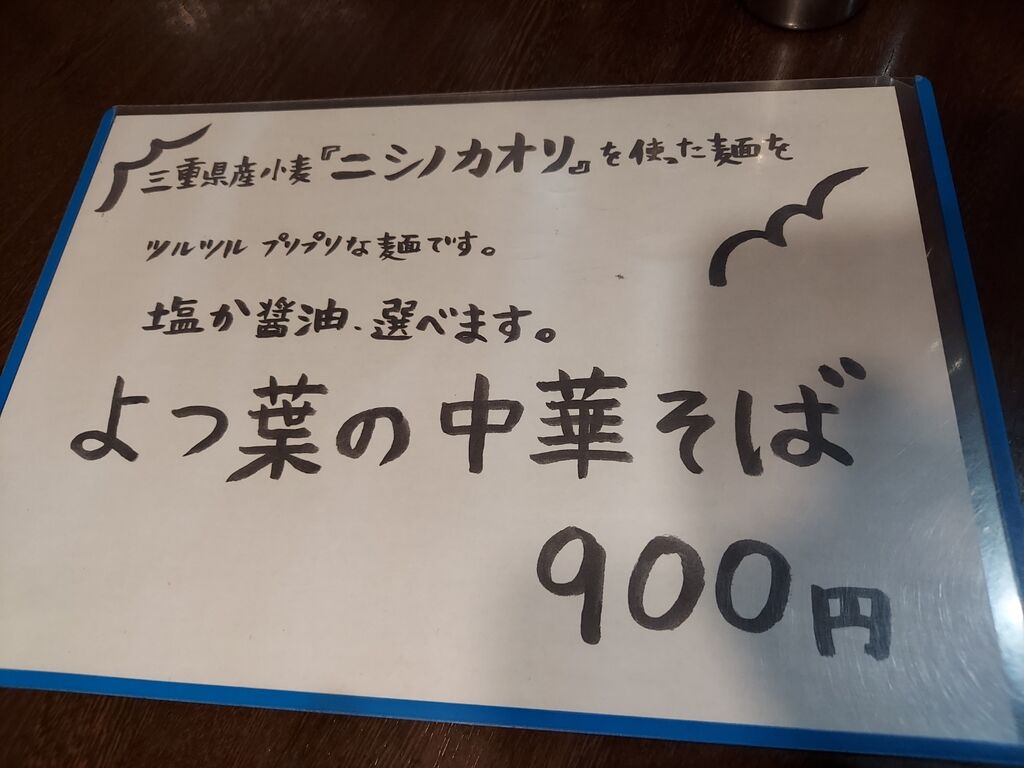 三重県産小麦『ニシノカオリ』を使った麺を
ツルツル プリプリな麺です。
塩か醤油、選べます。
よつ葉の中華そば
900円